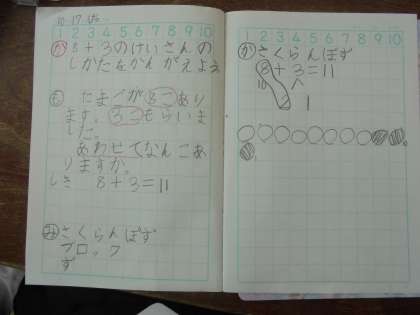 10.17 
1 2 3 4 5 6 7 8 9 10
か 8+3のけいさんの
しかたをかんがえよう
も たまごが8こあり
ます。3こもらいま
した。
あわせてなんこあ
りますか。
しき 8+3=11
み さくらんぼず
ブロック
ず
1 2 3 4 5 6 7 8 9 10
か さくらんぼず
8+3=11
10
1